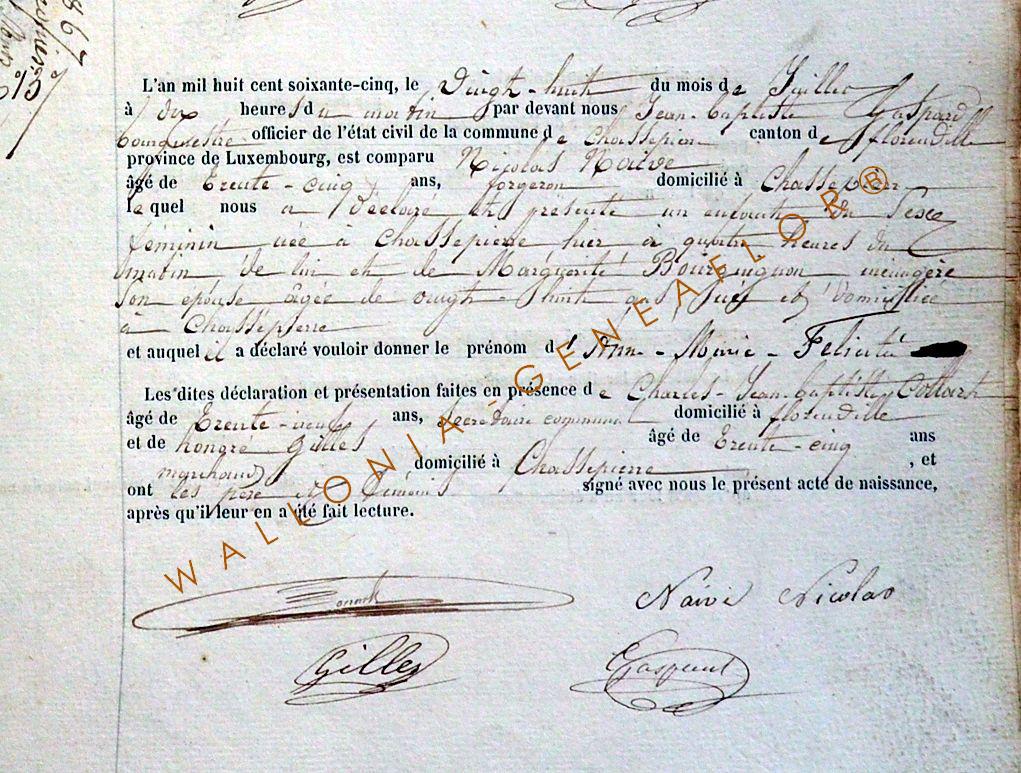 L'an mil huit cent soixante-cinq, le vingt-huit du mois de Juillet
à dix heures du matin par devant nous Jean-Baptiste Gaspard
Bourgmestre officier de l'état civil de la commune de Chassepierre canton de florenville
province de Luxembourg, est comparu Nicolas Naive
âgé de Trente-cinq ans, forgeron domicilié à Chassepierre
le quel nous a déclaré et présenté un enfant du sexe
féminin née à Chassepierre hier à quatre heures du
matin de lui et de Marguerite Bourguignon ménagère
son épouse âgée de vingt-huit ans née et domiciliée
à Chassepierre
et auquel il a déclaré vouloir donner le prénom d'Ann-Marie-Félicité
Les dites déclaration et présentation faites en présence de Charles-Jean-baptiste Collard
âgé de Trente-neuf ans, secrétaire communal domicilié à florenville
et de honoré Gilles âgé de Trente-cinq ans
marchand domicilié à Chassepierre, et
ont les père et témoins signé avec nous le présent acte de naissance,
après qu'il leur en a été fait lecture.
WALLONIA-GENEAFLOR®
Naive Nicolas
Gilles Gaspard